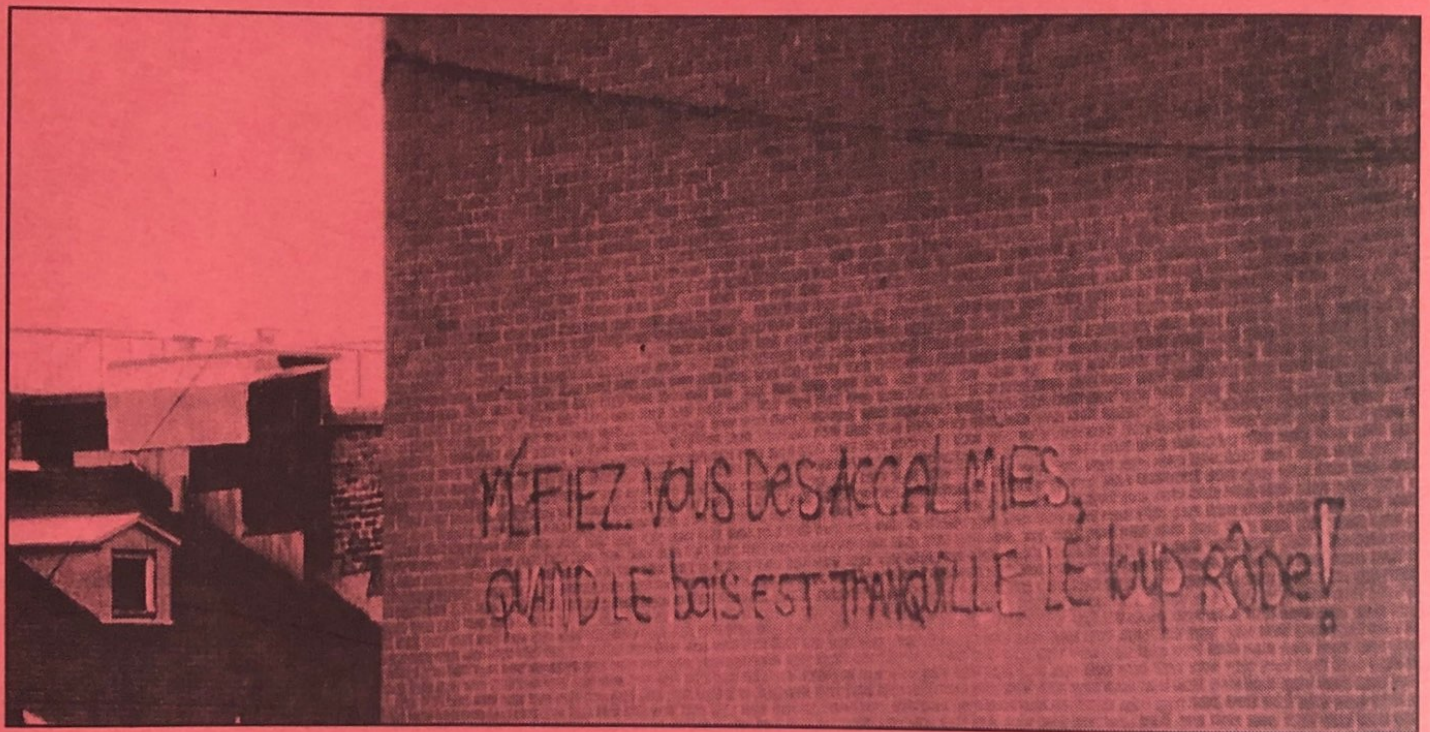 MÉFIEZ VOUS DeS ACCALMIES,
QUAND LE bois EST TRANQUILLE LE loup RÔDe!